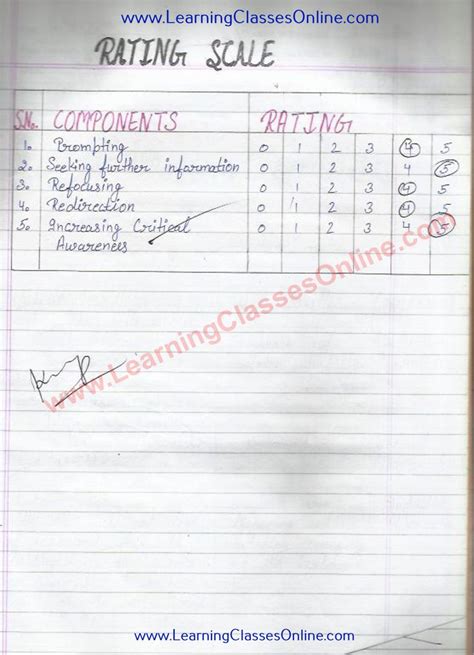 www.LearningClassesOnline.com
RATING SCALE
S.No. COMPONENTS RATING
1. Prompting 0 1 2 3 4 5
2. Seeking further information 0 1 2 3 4 5
3. Refocusing 0 1 2 3 4 5
4. Redirection 0 1 2 3 4 5
5. Increasing Critical 0 1 2 3 4 5
Awareness
www.LearningClassesOnline.com
www.LearningClassesOnline.com